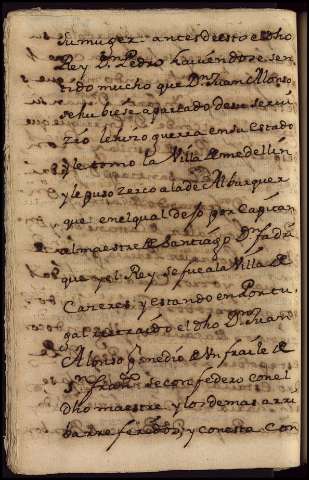 su muger antes desto el dho
Rey Dn Pedro haviendose sen
tido mucho que Dn Juan Alonso
se hubiese apartado de su servi
zio le hizo guerra en su estado
y le tomo la Villa de medellin
y le puso zerco a la de Alburquer
que en el qual dejo por Capitan
al maestre de Santiago Dn fadri
que y el Rey se fue a la Villa de
Cazeres, y estando en Portu
gal retraido el dho Dn Juan
Alonso por medio de un fraile de
Sn franco se confedero con el
dho maestre y los demas arri
ba referidos, y con esta con